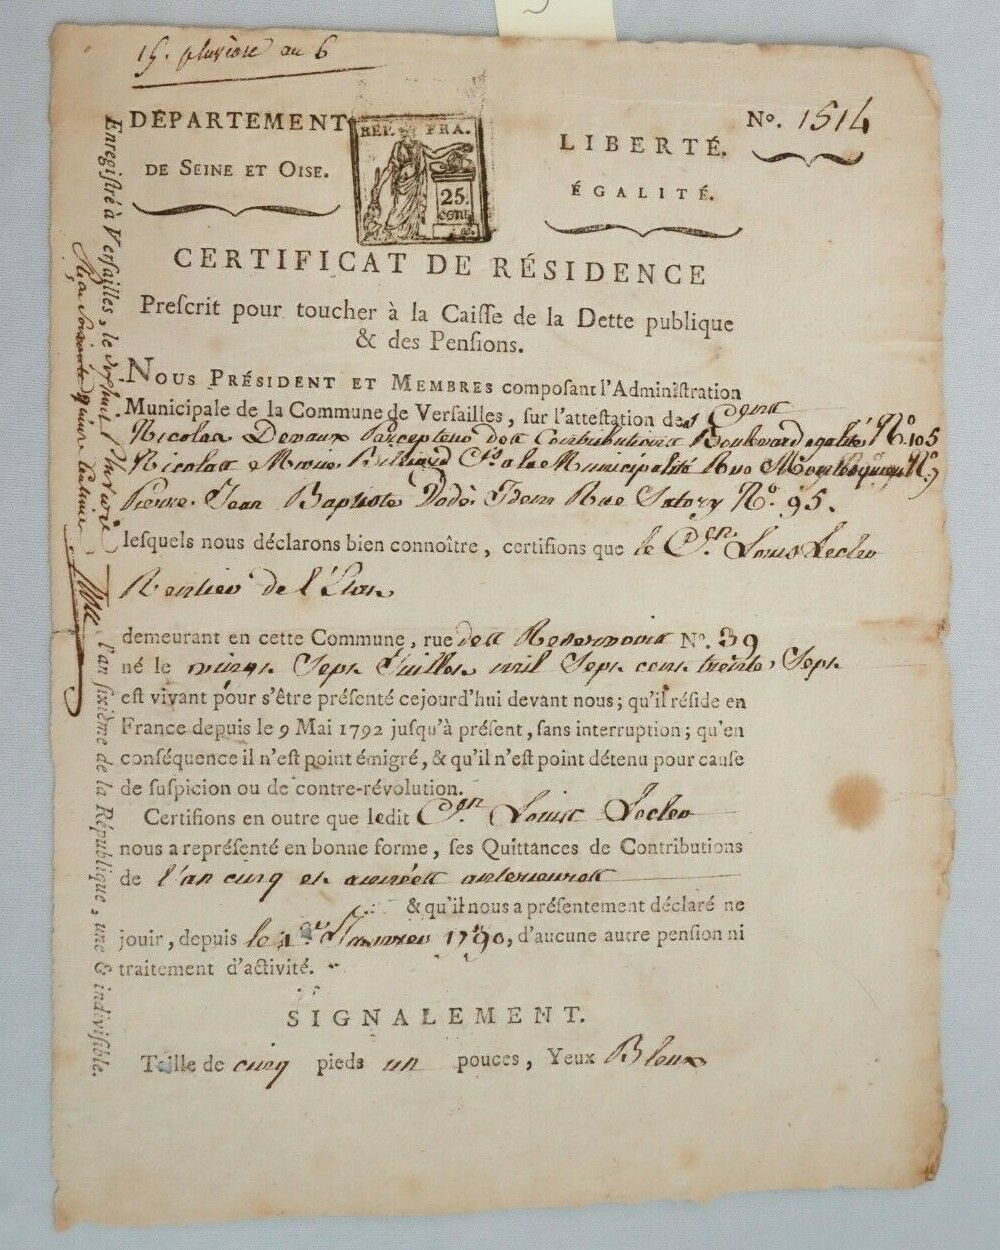 15. pluviose an 6
DÉPARTEMENT
DE SEINE ET OISE.
REP. FRA.
25.
cent.
LIBERTÉ.
ÉGALITÉ.
No. 1514
CERTIFICAT DE RÉSIDENCE
Preſcrit pour toucher à la Caiſſe de la Dette publique
& des Penſions.
NOUS PRÉSIDENT ET MEMBRES compoſant l'Adminiſtration
Municipale de la Commune de Verſailles, ſur l'atteſtation des Cens
Nicolas Devaux percepteur des Contributions Boulevard egalité No. 105
Nicolas Marie Billiard a la Municipalité Rue No. 9
Pierre Jean Baptiste Dodé Idem Rue Satory No. 95.
leſquels nous déclarons bien connoître, certifions que le Cen. Louis Lecler
Rentier de l'Etat
demeurant en cette Commune, rue des Reservoirs No. 39
né le vingt Sept Juillet mil Sept cent trente Sept
eſt vivant pour s'être préſenté cejourd'hui devant nous; qu'il réſide en
France depuis le 9 Mai 1792 juſqu'à préſent, ſans interruption; qu'en
conſéquence il n'eſt point émigré, & qu'il n'eſt point détenu pour cauſe
de ſuſpicion ou de contre-révolution.
Certifions en outre que ledit Cen. Louis Lecler
nous a repréſenté en bonne forme, ſes Quittances de Contributions
de l'an cinq et années anterieures
& qu'il nous a préſentement déclaré ne
jouir, depuis le 1er Janvier 1790, d'aucune autre penſion ni
traitement d'activité.
SIGNALEMENT.
Taille de cinq pieds un pouces, Yeux Bleux
Enregiſtré à Verſailles, le dixhuit Pluviose l'an ſixième de la République, une & indiviſible.